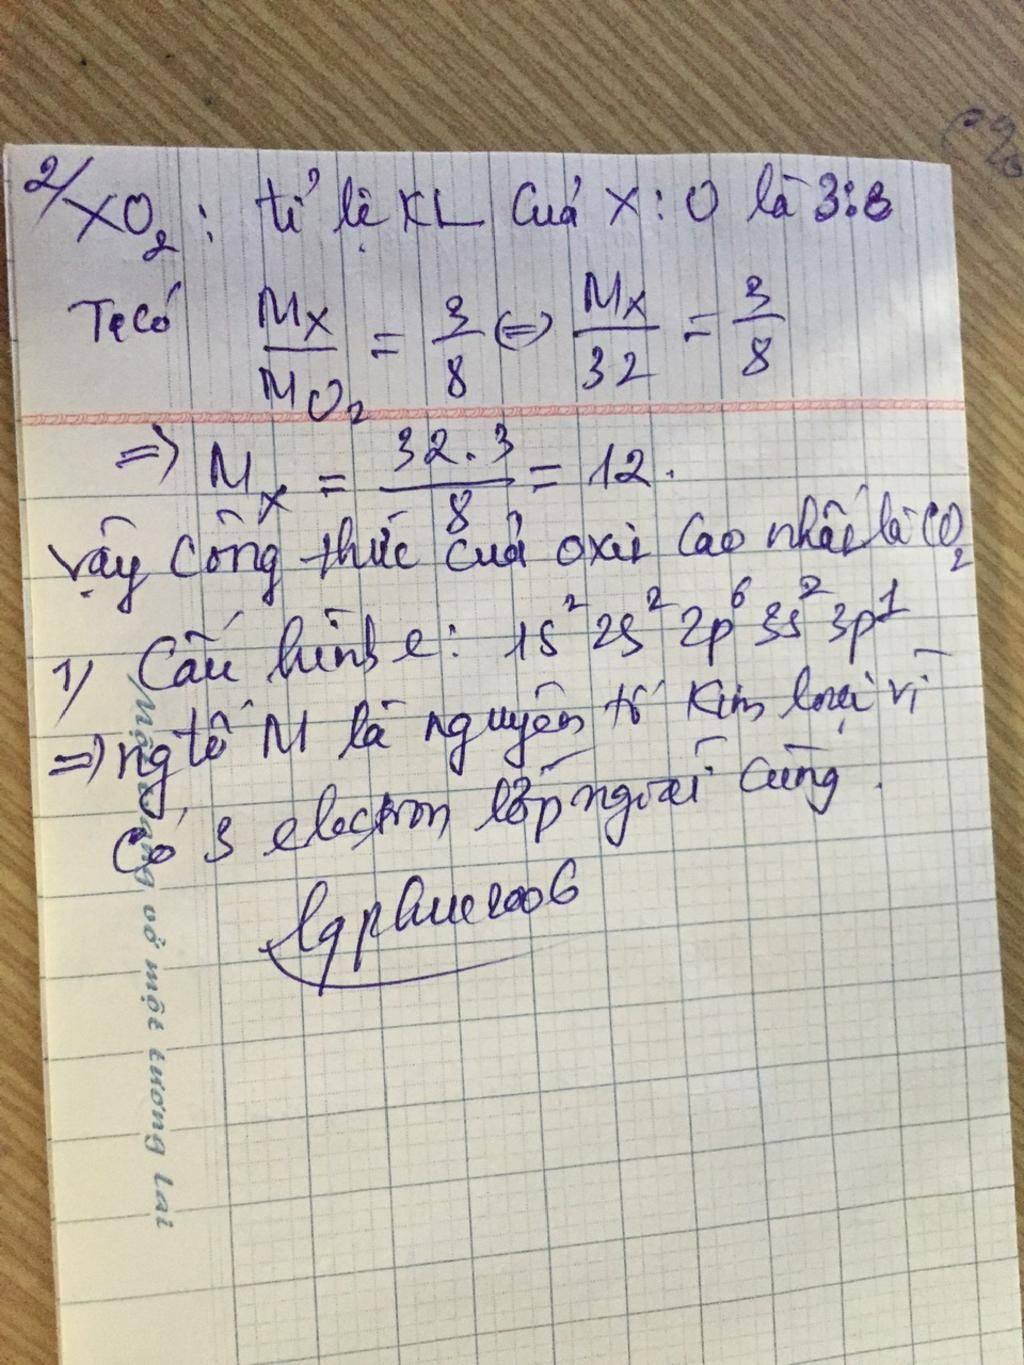 2/ XO₂ : tỉ lệ KL của X : O là 3:8
Ta có Mx/MO₂ = 3/8 (=) Mx/32 = 3/8
=> Mx = 32.3/8 = 12.
Vậy công thức của oxit cao nhất là CO₂
1/ Cấu hình e: 1s² 2s² 2p⁶ 3s² 3p¹
=> ng tố M là nguyên tố kim loại vì
Có 3 electron lớp ngoài cùng.
lgphuc2006
vở một tương lai